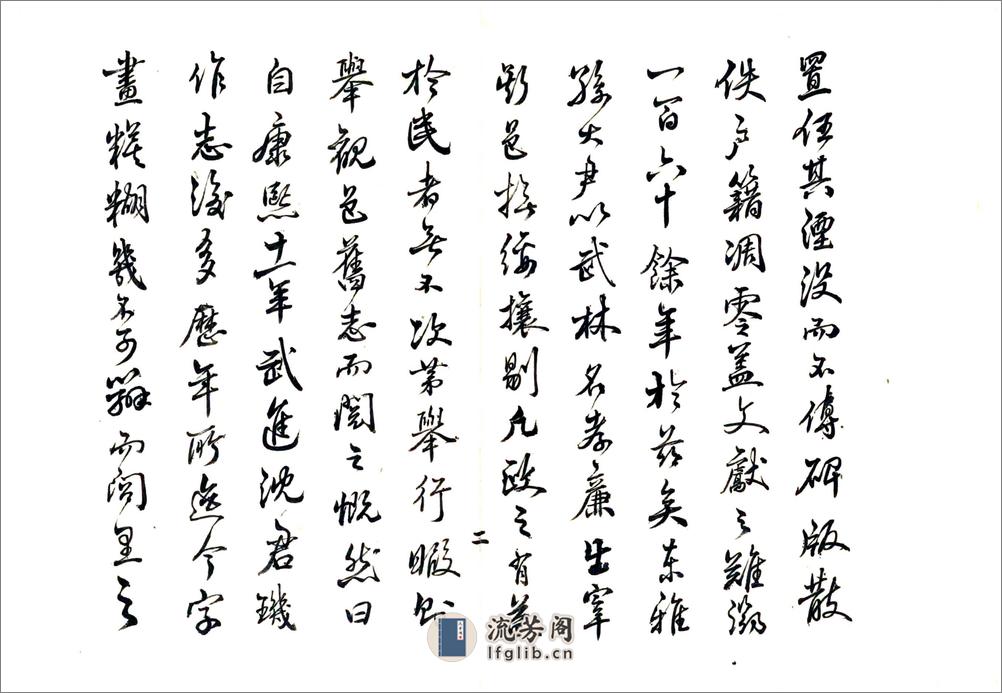 置任其湮没而不傳碑版散
佚戶籍凋零蓋文獻之難溯
一百六十餘年於茲矣東雅
孫大尹以武林名孝廉出宰
斯邑撫綏攘剔凡政之有益
二
於民者無不次第舉行暇則
舉觀邑舊志而閱之慨然曰
自康熙十一年武進沈君璣
作志後多歷年所迄今字
畫糢糊幾不可辨而閭里之
流芳阁
lfglib.cn